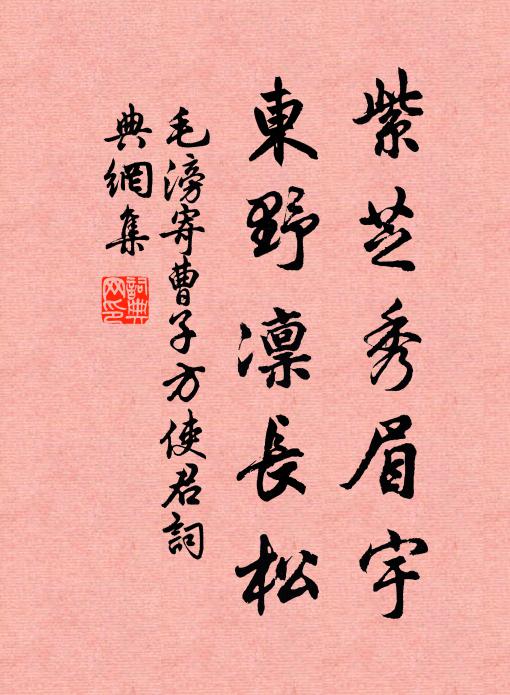 紫芝秀眉宇
東野凜長松
毛滂寄曹子方使君詞
典網集
詞典網印